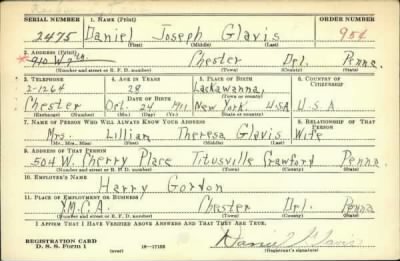 SERIAL NUMBER 1. NAME (Print) ORDER NUMBER
2475 Daniel Joseph Glavis 958
(First) (Middle) (Last)
2. ADDRESS (Print)
* 910 W 9th Chester Del. Penna.
(Number and street or R. F. D. number) (Town) (County) (State)
3. TELEPHONE 4. AGE IN YEARS 5. PLACE OF BIRTH 6. COUNTRY OF CITIZENSHIP
2-1264 28 Lackawanna,
DATE OF BIRTH (Town or county)
Chester Oct. 24 1911 New York. USA U S A
(Exchange) (Number) (Mo.) (Day) (Yr.) (State or country)
7. NAME OF PERSON WHO WILL ALWAYS KNOW YOUR ADDRESS 8. RELATIONSHIP OF THAT PERSON
Mrs. Lillian Theresa Glavis Wife
(Mr., Mrs., Miss) (First) (Middle) (Last)
9. ADDRESS OF THAT PERSON
504 W. Cherry Place Titusville Crawford Penna
(Number and street or R. F. D. number) (Town) (County) (State)
10. EMPLOYER'S NAME
Harry Gordon
11. PLACE OF EMPLOYMENT OR BUSINESS
Y.M.C.A. Chester Del. Penna
(Number and street or R. F. D. number) (Town) (County) (State)
I AFFIRM THAT I HAVE VERIFIED ABOVE ANSWERS AND THAT THEY ARE TRUE.
REGISTRATION CARD
D. S. S. Form 1 (over) 16—17105 Daniel J Glavis
(Registrant's signature)